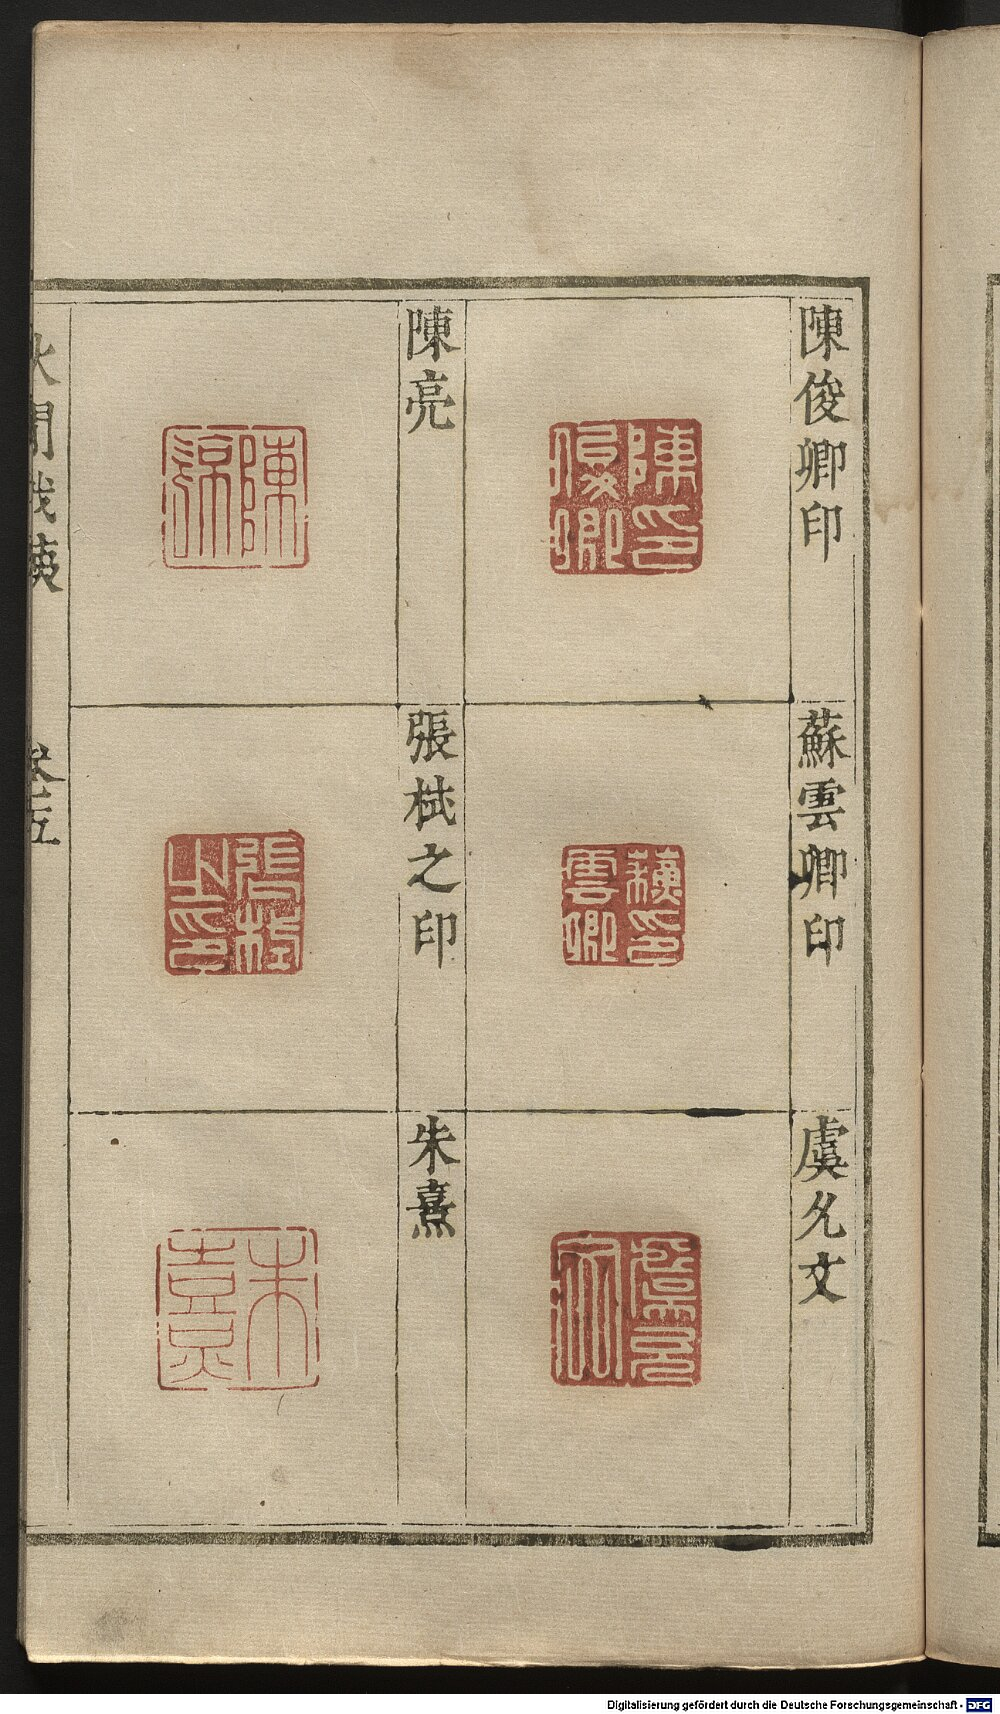 陳俊卿印
陳印俊卿
蘇雲卿印
蘇印雲卿
虞允文
虞允文
陳亮
陳亮
張栻之印
張栻之印
朱熹
朱熹
卷五
Digitalisierung gefördert durch die Deutsche Forschungsgemeinschaft - DFG